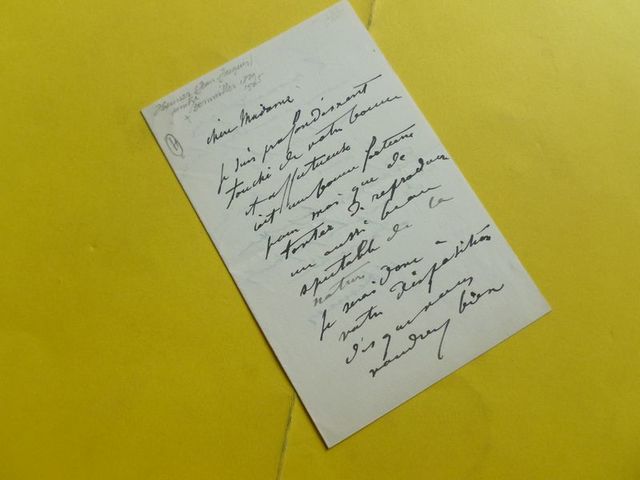 Henner (Jean Jacques)
peintre
+ Bernwiller 1829
1905
chère Madame
Je suis profondément
touché de votre bonne
et affectueuse
c'est une bonne fortune
pour moi que de
tenter de reproduire
un aussi beau
spectacle de la
nature
Je serai donc à
votre disposition
dès que vous
voudrez bien